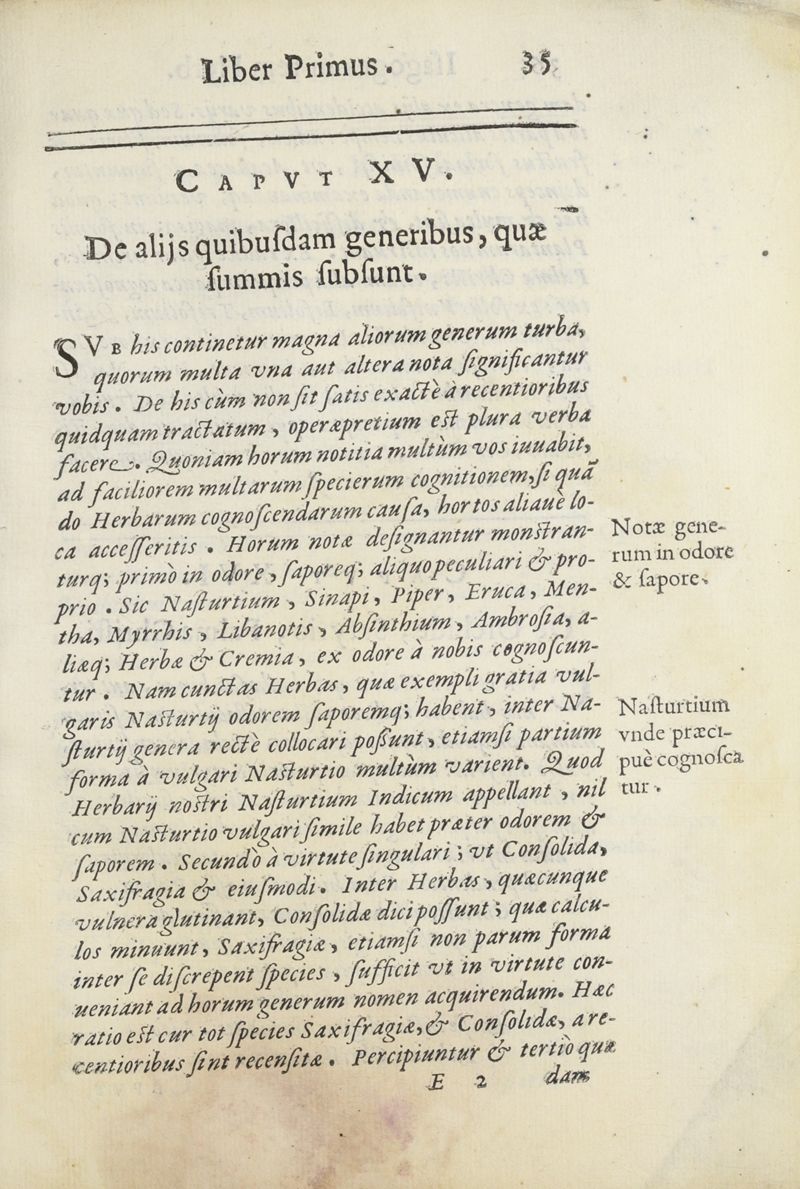 Liber Primus. 35
CAPVT XV.
De alijs quibuſdam generibus, quæ
ſummis ſubſunt.
SVB his continetur magna aliorum generum turba,
quorum multa vna aut altera nota ſignificantur
vobis. De his cùm non ſit ſatis exactè à recentioribus
quidquam tractatum, operæpretium eſt plura verba
facere. Quoniam horum notitia multùm vos iuuabit,
ad faciliorem multarum ſpecierum cognitionem, ſi quã
do Herbarum cognoſcendarum cauſa, hortos aliauè lo-
ca acceſſeritis. Horum notæ deſignantur monſtran-
turq; primò in odore, ſaporeq; aliquo peculiari & pro-
prio. Sic Naſturtium, Sinapi, Piper, Eruca, Men-
tha, Myrrhis, Libanotis, Abſinthium, Ambroſia, a-
liæq; Herbæ & Cremia, ex odore à nobis cognoſcun-
tur. Nam cunctas Herbas, quæ exempli gratia vul-
garis Naſturtij odorem ſaporemq; habent, inter Na-
ſturtij genera rectè collocari poſſunt, etiamſi partium
forma à vulgari Naſturtio multùm varient. Quod
Herbarij noſtri Naſturtium Indicum appellant, nil
cum Naſturtio vulgari ſimile habet præter odorem &
ſaporem. Secundò à virtute ſingulari; vt Conſolida,
Saxifragia & eiuſmodi. Inter Herbas, quæcunque
vulnera glutinant, Conſolidæ dici poſſunt; quæ calcu-
los minuunt, Saxifragiæ, etiamſi non parum forma
inter ſe diſcrepent ſpecies, ſufficit vt in virtute con-
ueniant ad horum generum nomen acquirendum. Hæc
ratio eſt cur tot ſpecies Saxifragiæ, & Conſolidæ, a re-
centioribus ſint recenſitæ. Percipiuntur & tertio quæ
E 2 dam
Notæ gene-
rum in odore
& ſapore.
Naſturtium
vnde præci-
puè cognoſcã
tur.